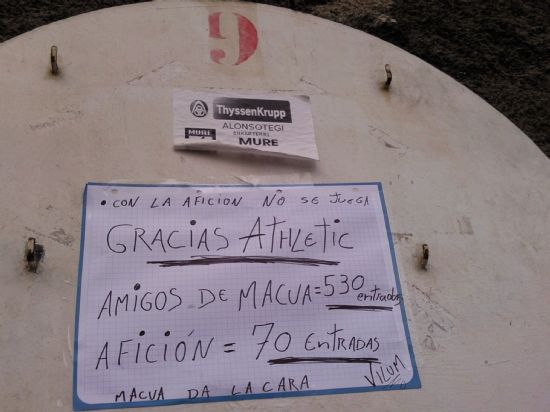 9
ThyssenKrupp
ALONSOTEGI
ENKARTERRI
MURE MURE
• CON LA AFICION NO SE JUEGA
GRACIAS ATHLETIC
AMIGOS DE MACUA = 530 entradas
AFICIÓN = 70 ENTRADAS
MACUA DA LA CARA